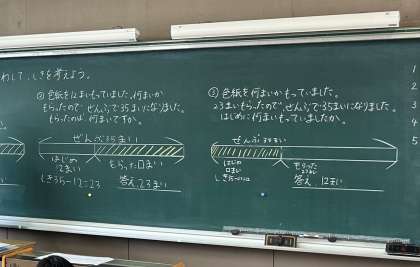 わして、しきを考えよう。
② 色紙を12まいもっていました。何まいか
もらったので ぜんぶで35まいになりました。
もらったのは 何まいですか。
ぜんぶ35まい
はじめ
12まい
もらった□まい
しき35-12=23
答え 23まい
③ 色紙を何まいかもっていました。
23まいもらったので、ぜんぶで35まいになりました。
はじめに何まいもっていましたか。
ぜんぶ35まい
はじめ
□まい
もらった
23まい
答え 12まい
1
2
4
5